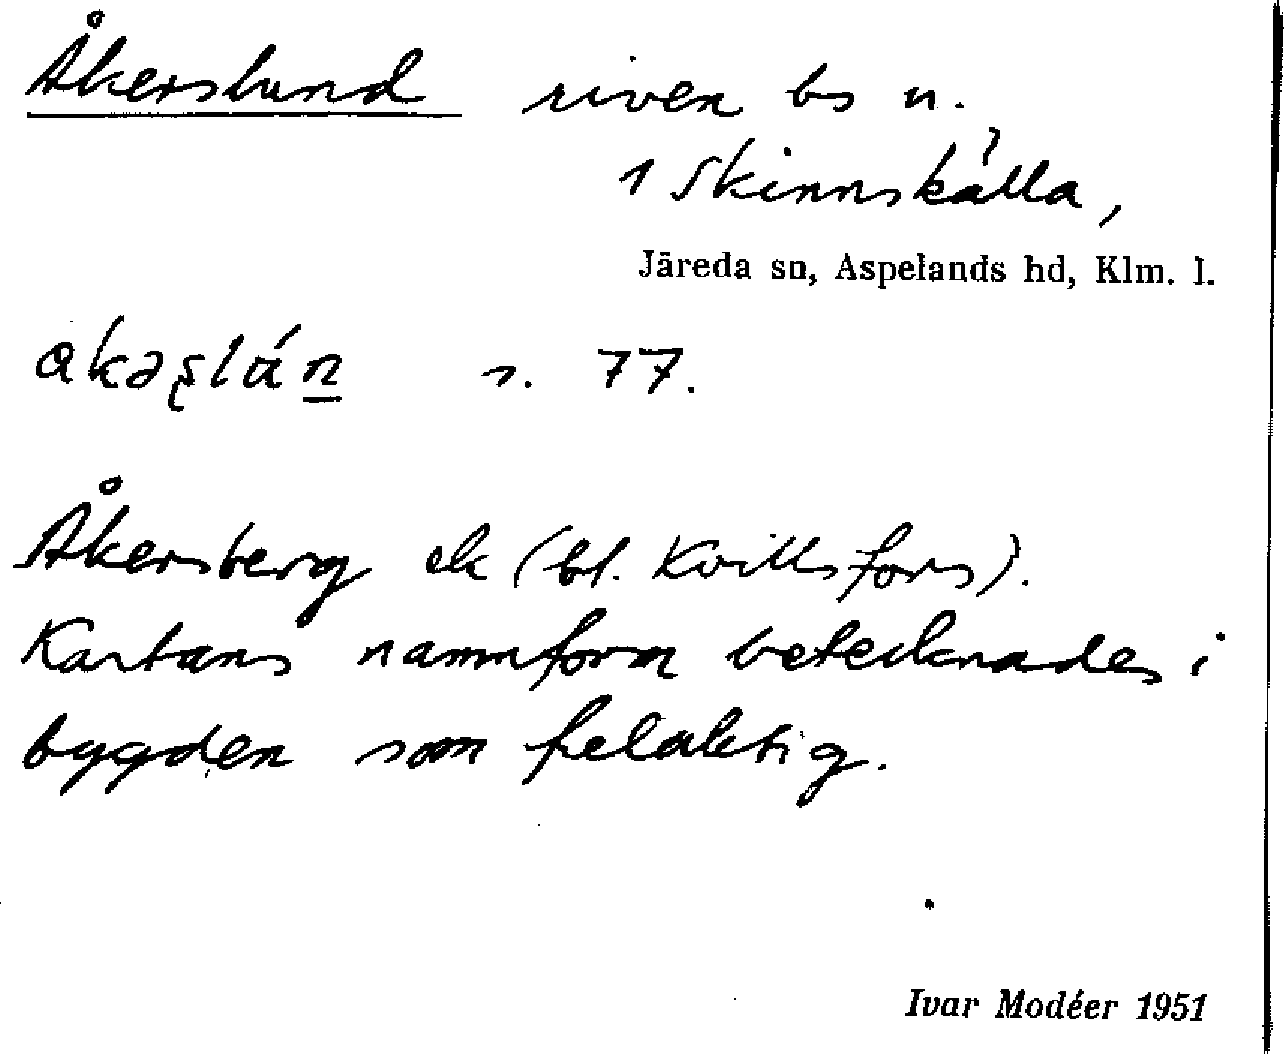 Åkerslund riven bs u.
1 Skinnskälla,
Järeda sn, Aspelands hd, Klm. l.
s. 77.
Åkersberg ek (bl. Kvillsfors).
Kartans namnform betecknades i
bygden som felaktig.
Ivar Modéer 1951